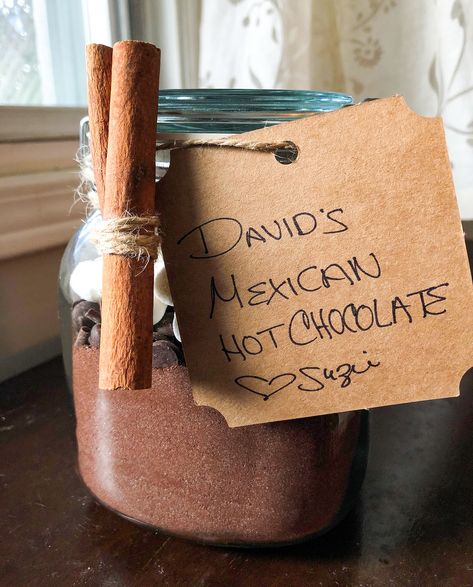 DAVID'S
MEXICAN
HOT CHOCOLATE
♡ Suzii